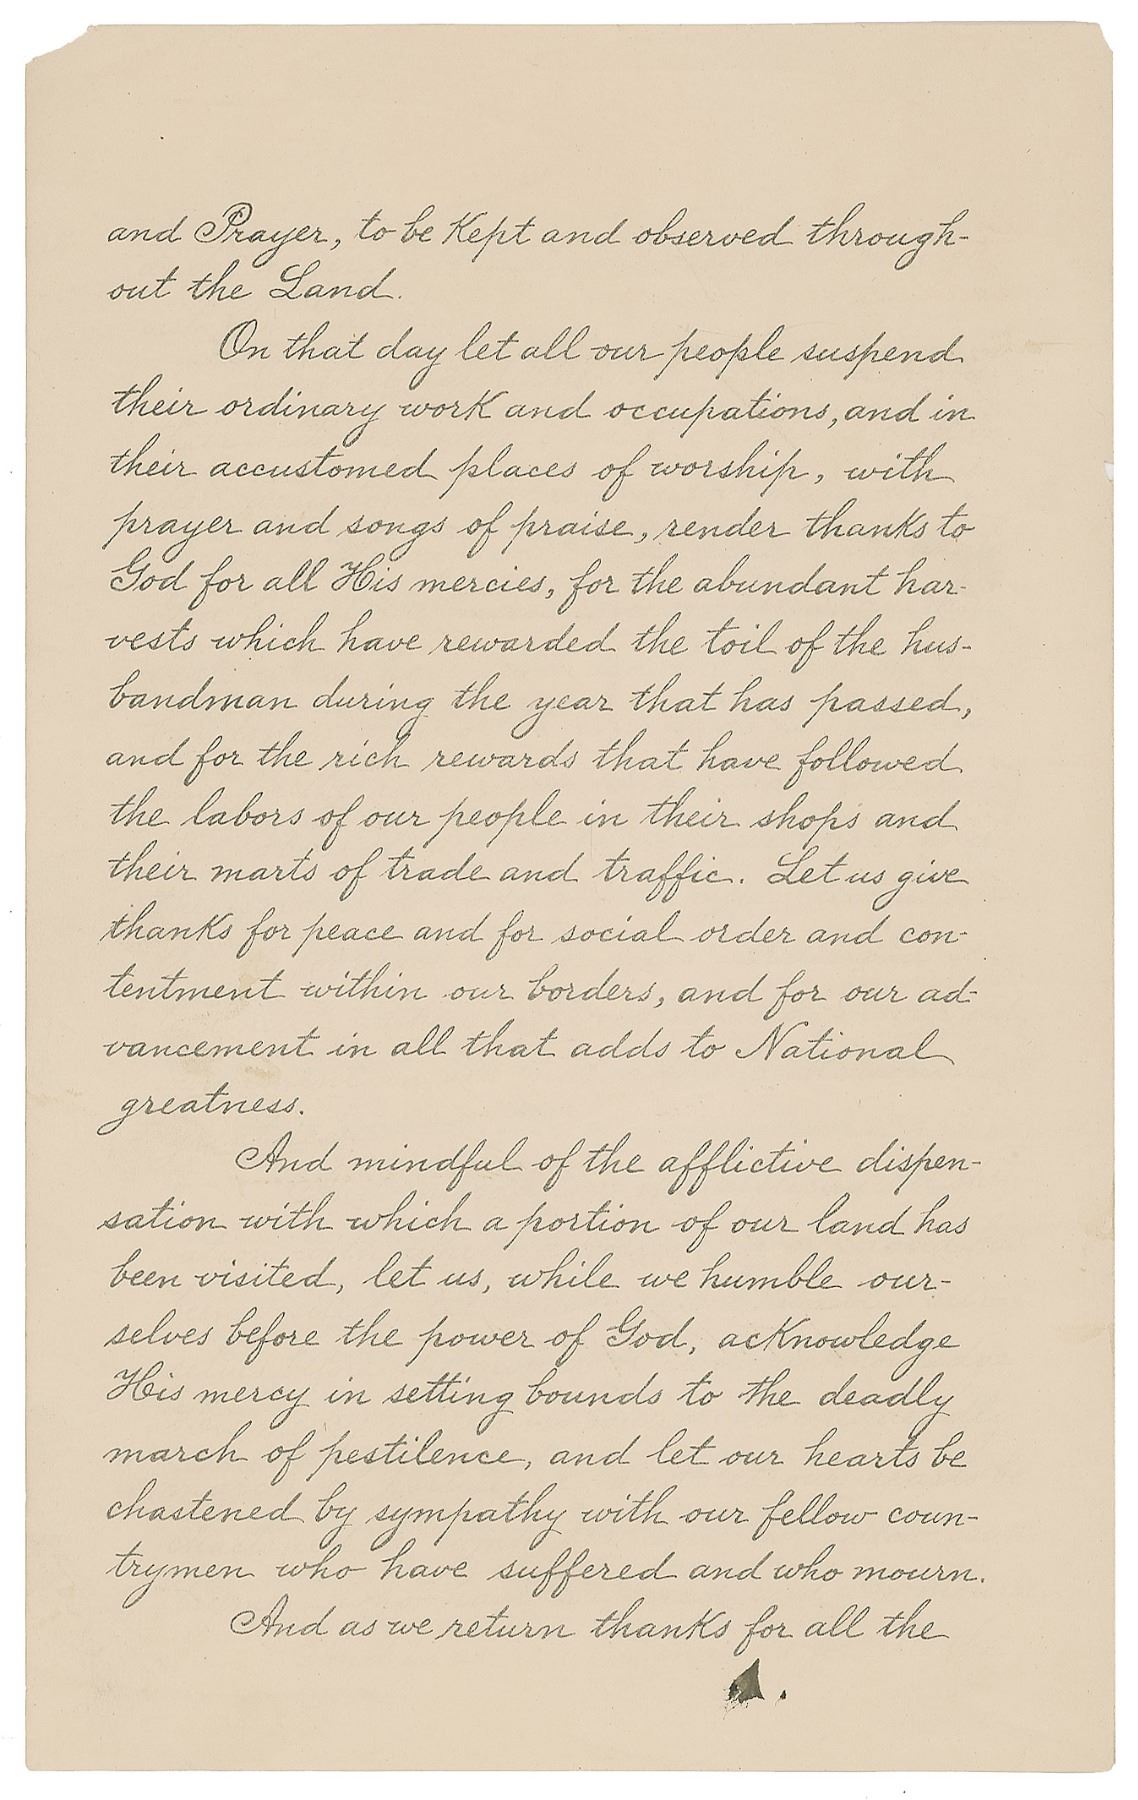 and Prayer, to be Kept and observed through-
out the Land.
On that day let all our people suspend
their ordinary work and occupations, and in
their accustomed places of worship, with
prayer and songs of praise, render thanks to
God for all His mercies, for the abundant har-
vests which have rewarded the toil of the hus-
bandman during the year that has passed,
and for the rich rewards that have followed
the labors of our people in their shops and
their marts of trade and traffic. Let us give
thanks for peace and for social order and con-
tentment within our borders, and for our ad-
vancement in all that adds to National
greatness.
And mindful of the afflictive dispen-
sation with which a portion of our land has
been visited, let us, while we humble our-
selves before the power of God, acknowledge
His mercy in setting bounds to the deadly
march of pestilence, and let our hearts be
chastened by sympathy with our fellow coun-
trymen who have suffered and who mourn.
And as we return thanks for all the